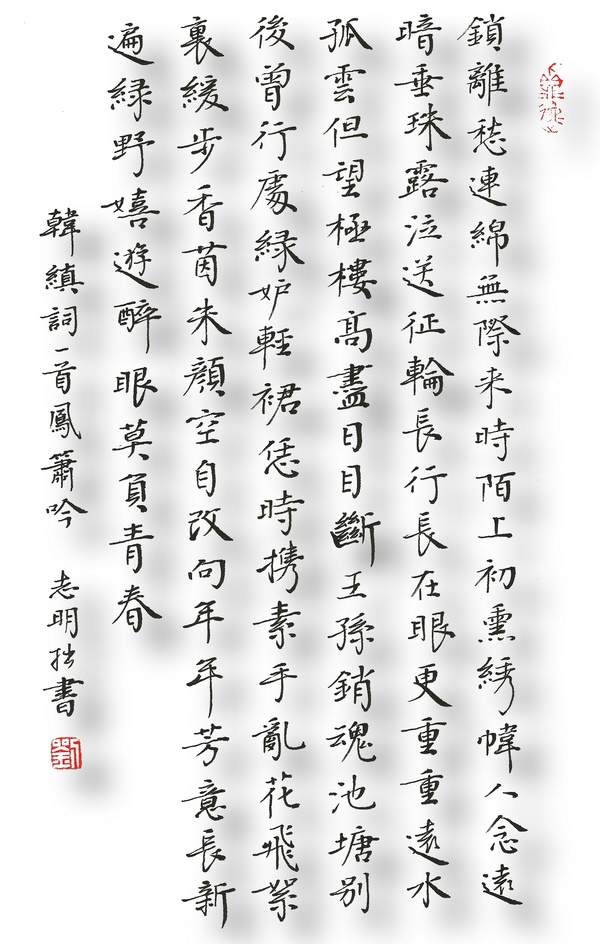 鎖離愁連綿無際来時陌上初熏綉幃人念遠
暗垂珠露泣送征輪長行長在眼更重重遠水
孤雲但望極樓高盡日目斷王孫銷魂池塘别
後曾行處緑妒輕裙恁時携素手亂花飛絮
裏緩步香茵朱顏空自改向年年芳意長新
遍緑野嬉遊醉眼莫負青春
韓縝詞一首鳳簫吟 志明拙書
劉